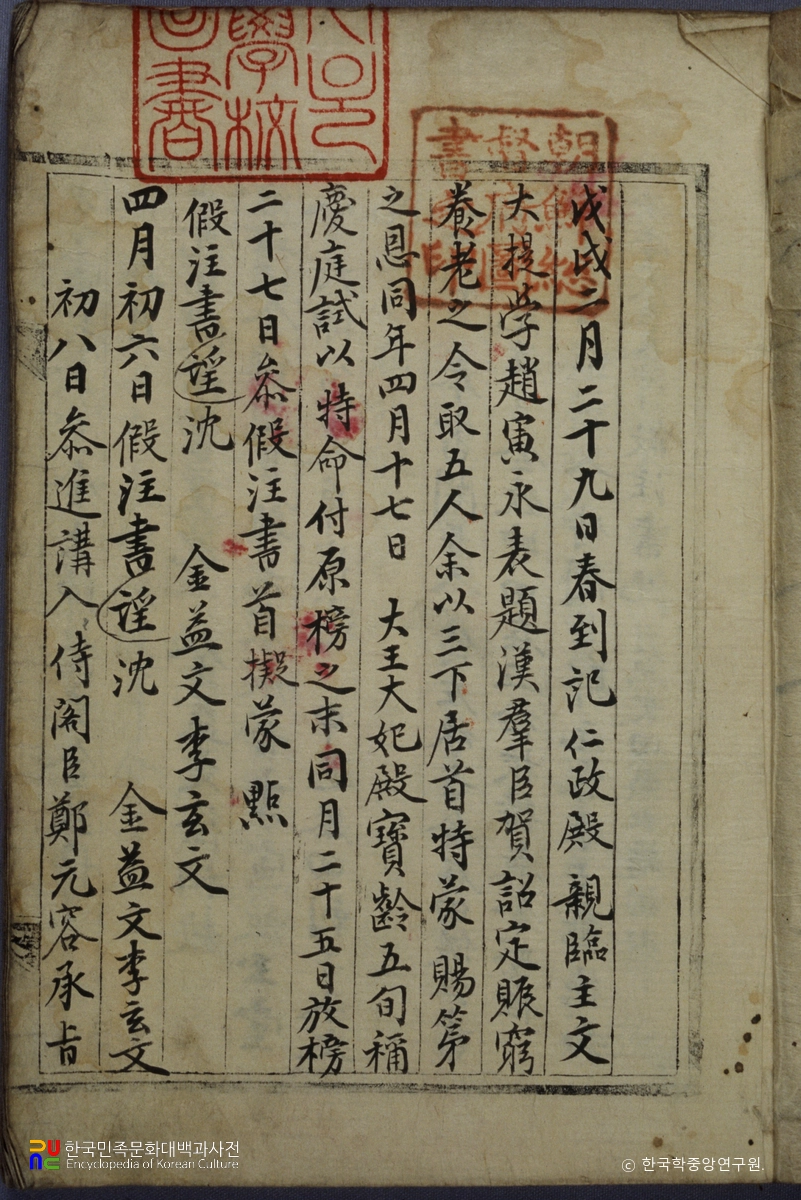 戊戌二月二十九日春到記仁政殿親臨主文
大提学趙寅永表題漢羣臣賀詔定賑窮
養老之令取五人余以三下居首特蒙 賜第
之恩同年四月十七日 大王大妃殿寶齡五旬稱
慶庭試以特命付原榜之末同月二十五日放榜
二十七日叅假注書首擬蒙 點
假注書 沈 金益文李玄文
四月初六日假注書 沈 金益文李玄文
初八日叅進講入侍閣臣鄭元容承旨
한국민족문화대백과사전
Encyclopedia of Korean Culture
© 한국학중앙연구원.